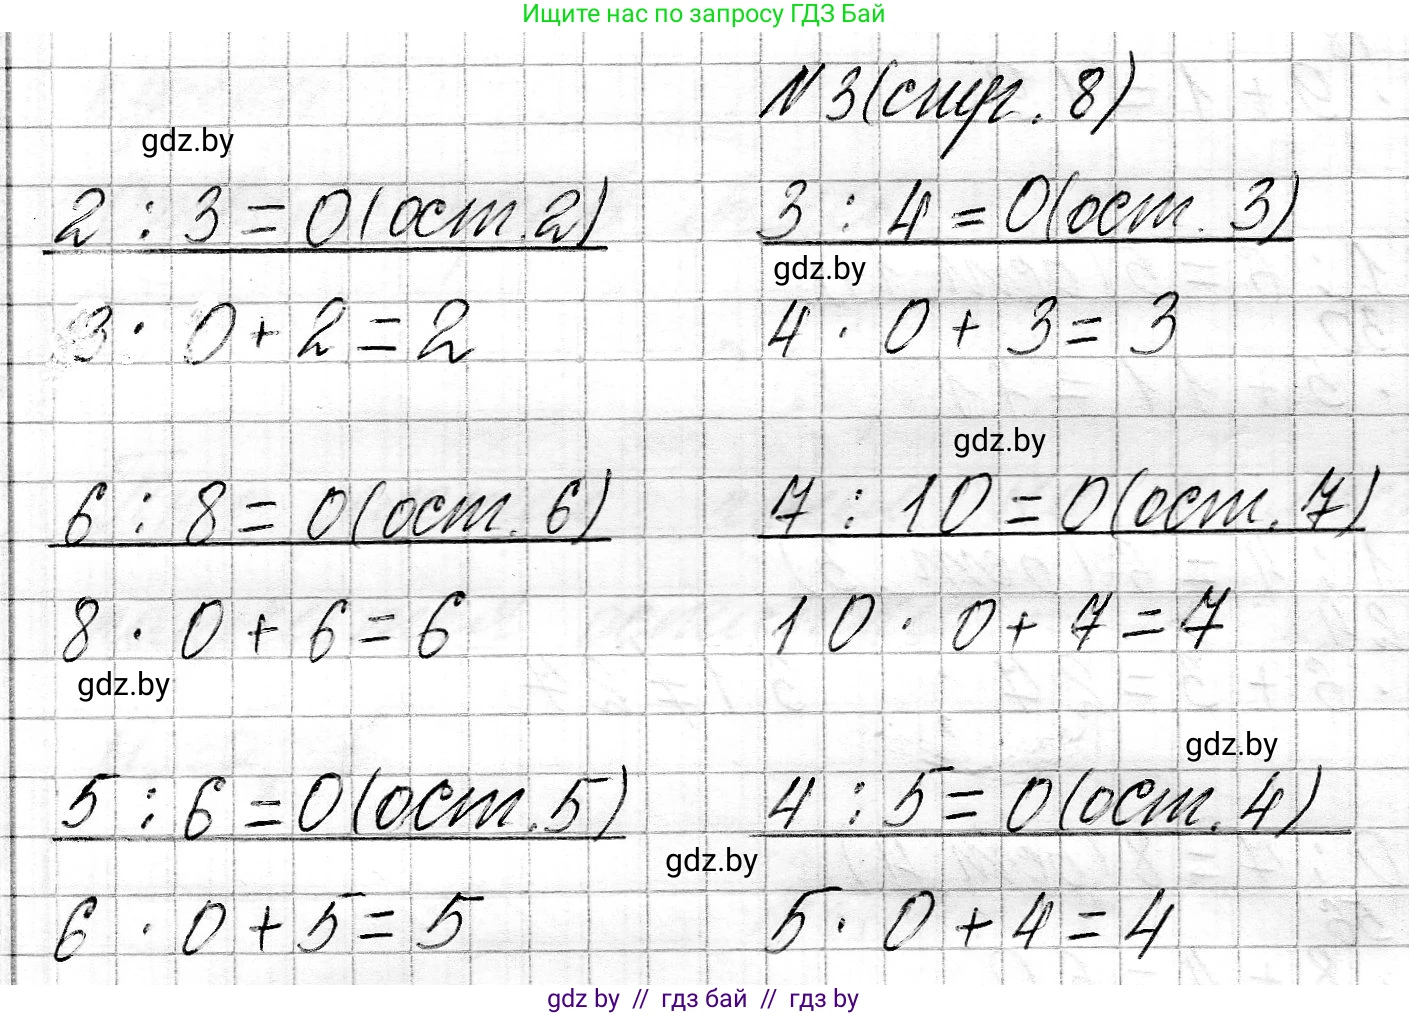 Ищите нас по запросу ГДЗ Бай
N 3 (стр. 8)
gdz.by
2 : 3 = 0 (ост. 2) 3 : 4 = 0 (ост. 3)
gdz.by
3 · 0 + 2 = 2 4 · 0 + 3 = 3
gdz.by
6 : 8 = 0 (ост. 6) 7 : 10 = 0 (ост. 7)
8 · 0 + 6 = 6 10 · 0 + 7 = 7
gdz.by
gdz.by
5 : 6 = 0 (ост. 5) 4 : 5 = 0 (ост. 4)
gdz.by
6 · 0 + 5 = 5 5 · 0 + 4 = 4
gdz by // гдз бай // гдз by